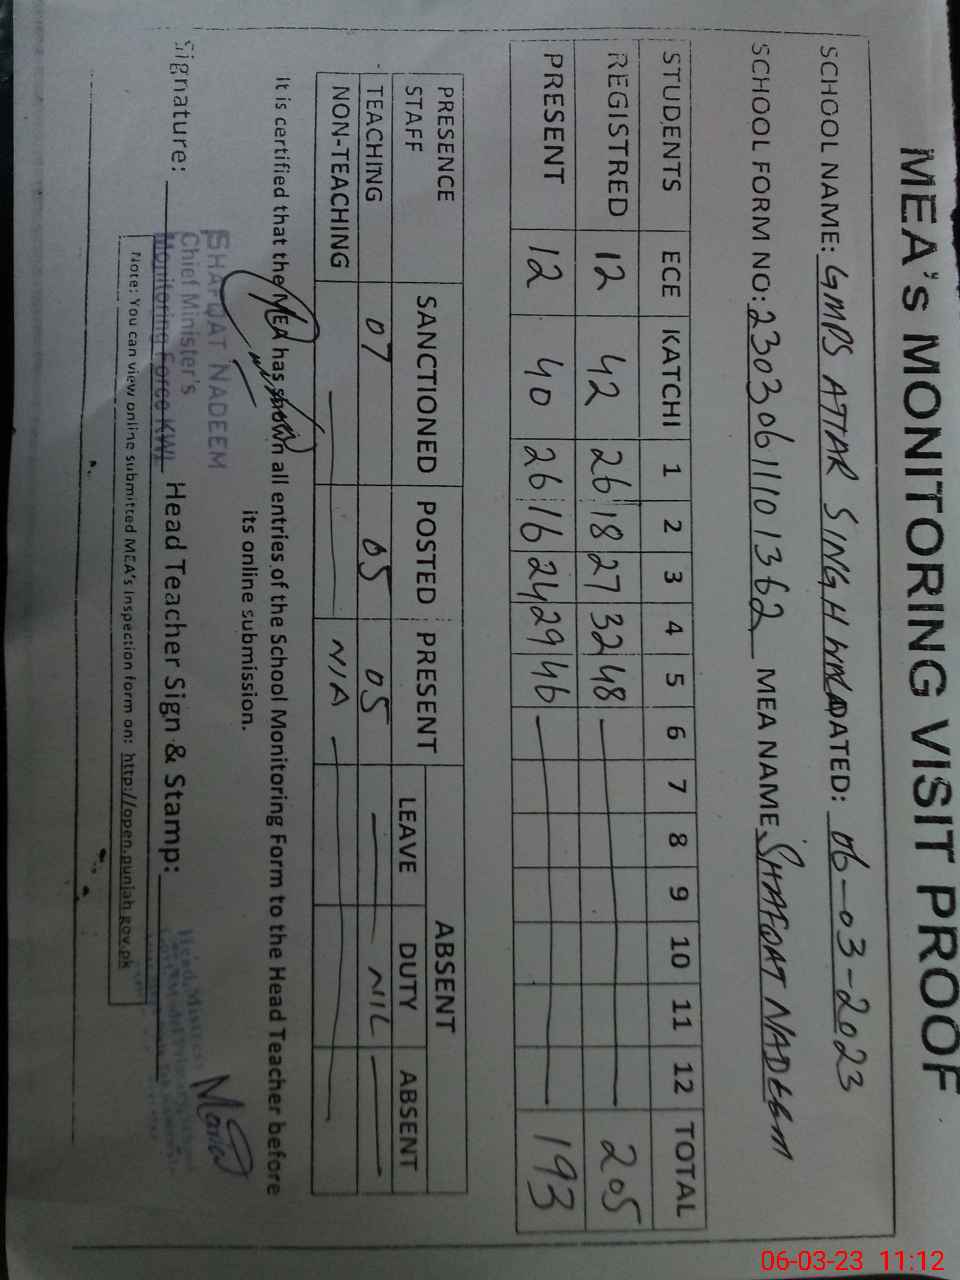 MEA's MONITORING VISIT PROOF
SCHOOL NAME: GMPS ATTAR SINGH DATED: 06-03-2023
SCHOOL FORM NO: 23030611101362 MEA NAME SHAFQAT NADEEM
STUDENTS ECE KATCHI 1 2 3 4 5 6 7 8 9 10 11 12 TOTAL
REGISTRED 12 42 26 18 27 32 48 205
PRESENT 12 40 26 16 24 29 46 193
PRESENCE STAFF SANCTIONED POSTED PRESENT ABSENT
LEAVE DUTY ABSENT
TEACHING 07 05 05 — NIL —
NON-TEACHING — N/A —
It is certified that the MEA has shown all entries of the School Monitoring Form to the Head Teacher before
its online submission.
SHAFQAT NADEEM
Chief Minister's
Monitoring Force KWL
Signature: Head Teacher Sign & Stamp:
Head Mistress
Maria
Note: You can view online submitted MEA's Inspection form on: http://open.punjab.gov.pk
06-03-23 11:12